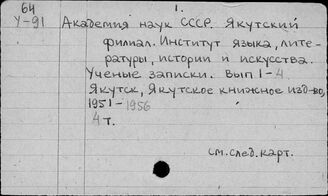 1.
64
У-91
Академия наук СССР. Якутский
филиал. Институт языка, лите-
ратуры, истории и искусства.
Ученые записки. Вып 1-4
Якутск, Якутское книжное изд-во,
1951-1956
4 т.
см. след. карт.